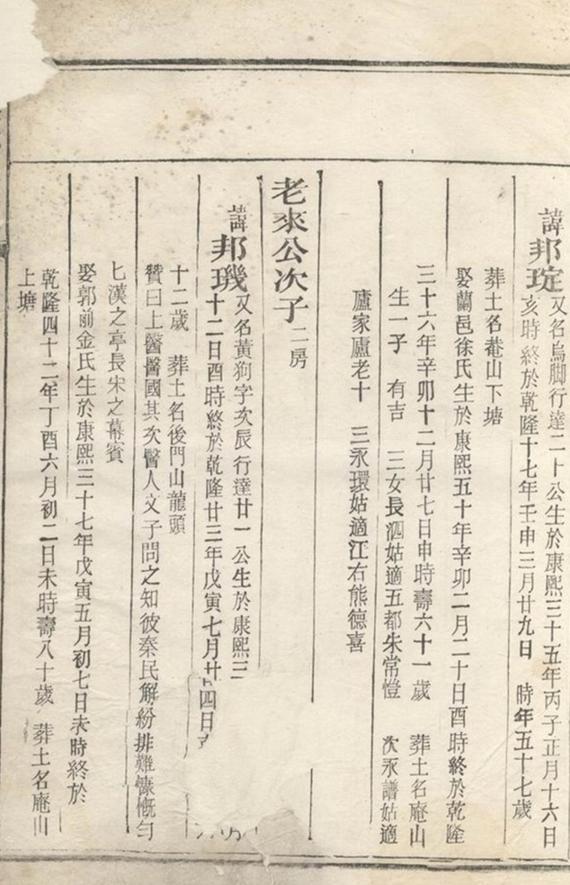 諱邦琁又名烏脚行達二十公生於康熙三十五年丙子正月十六日
亥時終於乾隆十七年壬申三月廿九日 時年五十七歲
葬土名菴山下塘
娶蘭邑徐氏生於康熙五十年辛卯二月二十日酉時終於乾隆
三十六年辛卯十二月廿七日申時壽六十一歲 葬土名庵山
生一子 有吉 三女長泗姑適五都朱常愷 次永譜姑適
廬家廬老十 三永環姑適江右熊德喜
老來公次子二房
諱邦璣又名黃狗字次辰行達廿一公生於康熙三
十二日酉時終於乾隆廿三年戊寅七月廿四日
十二歲 葬土名後門山龍頭
贊曰上醫醫國其次醫人文子問之知彼秦民解紛排難慷慨
七漢之亭長宋之幕賓
娶郭前金氏生於康熙三十七年戊寅五月初七日未時終於
乾隆四十二年丁酉六月初二日未時壽八十歲 葬土名庵山
上塘